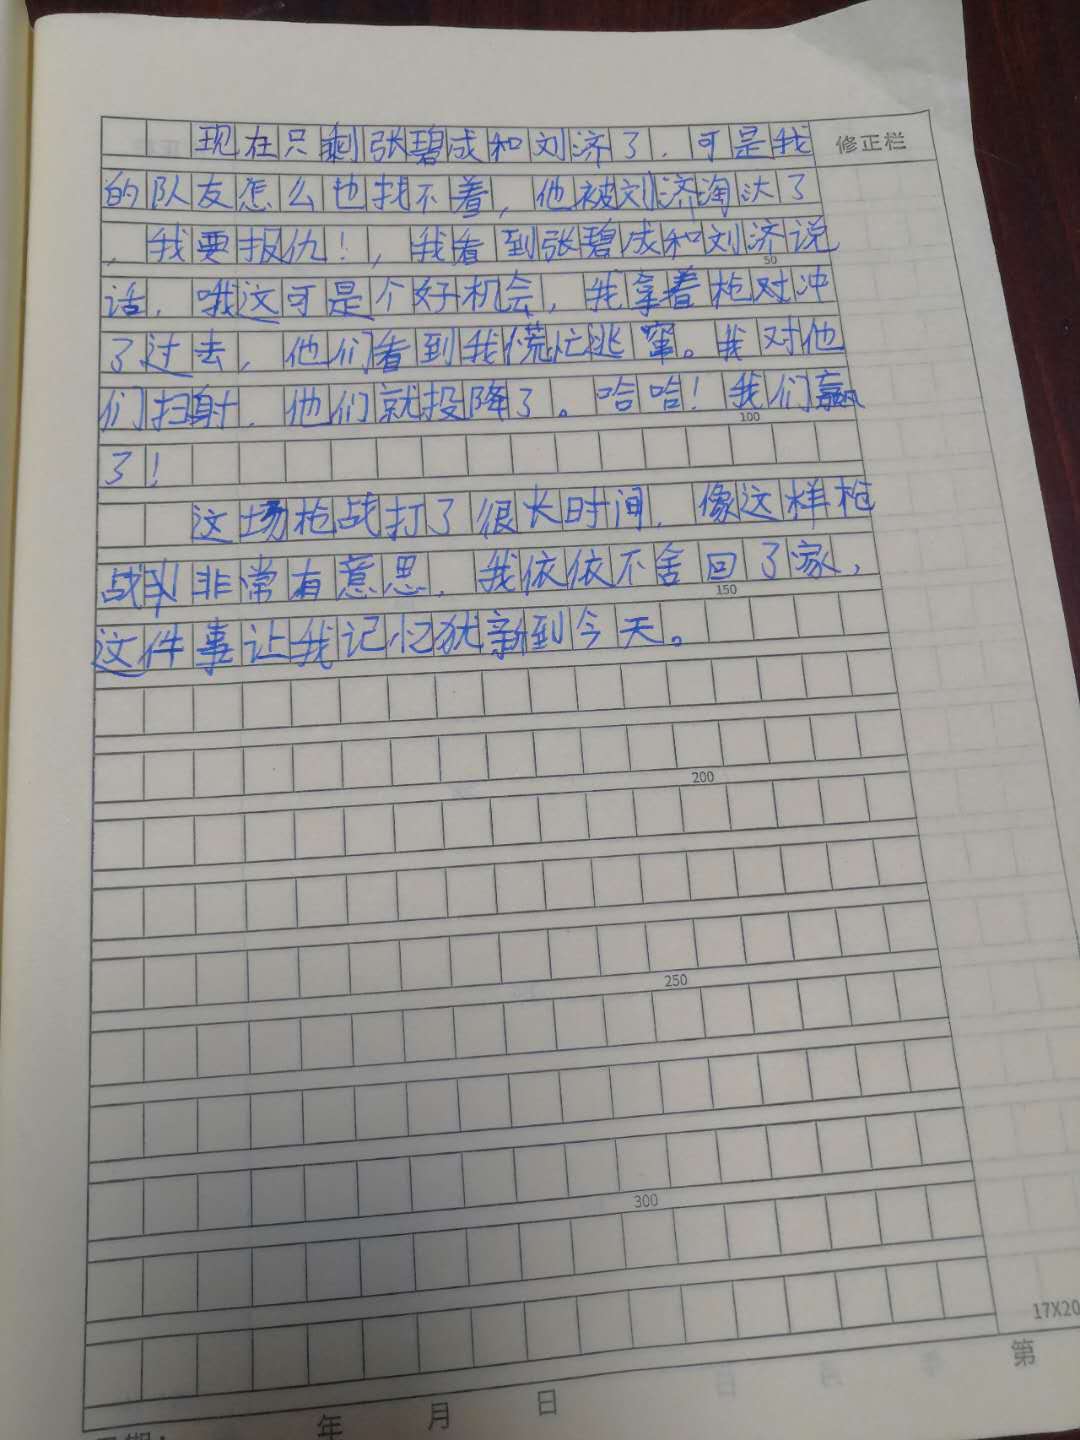 现在只剩张碧成和刘济了，可是我
修正栏
的队友怎么也找不着，他被刘济淘汰了
，我要报仇！，我看到张碧成和刘济说
50
话，哦这可是个好机会，我拿着枪对冲
了过去，他们看到我慌忙逃窜。我对他
们扫射，他们就投降了。哈哈！我们赢
100
了！
这场枪战打了很长时间，像这样枪
战非常有意思，我依依不舍回了家，
150
这件事让我记忆犹新到今天。
200
250
300
17X20
第
年 月 日